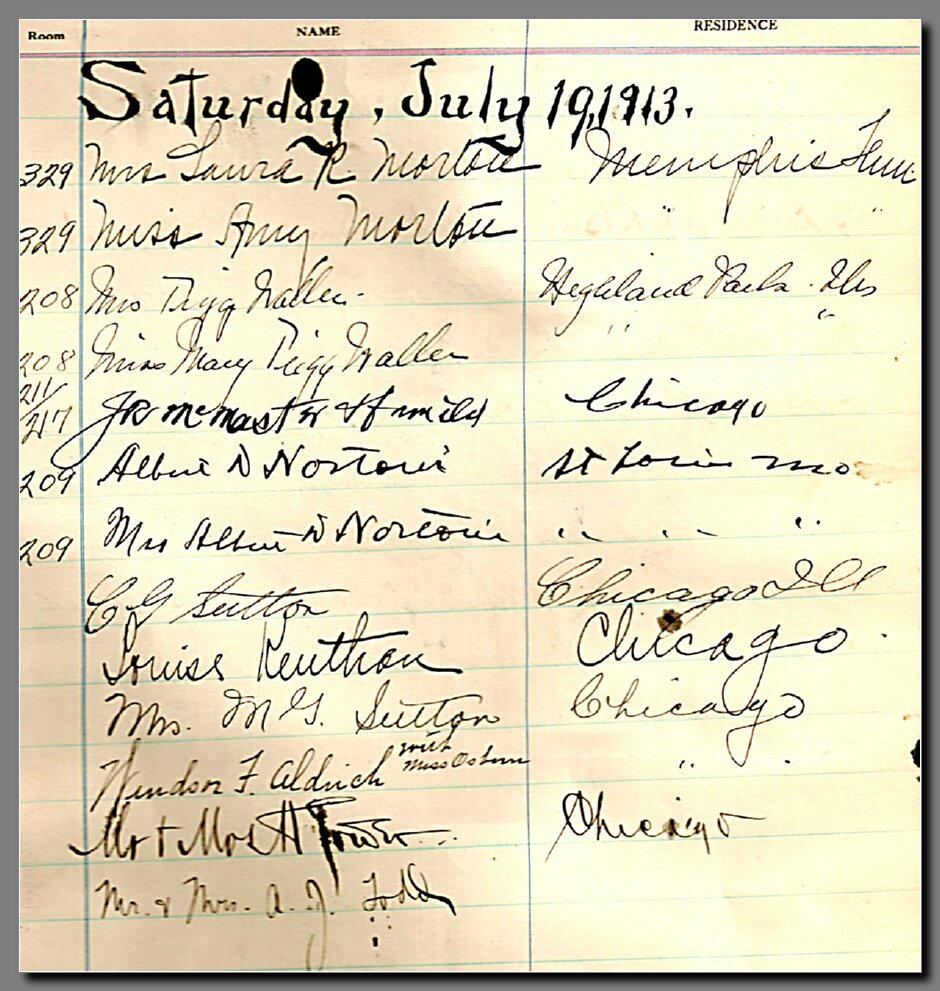 Room NAME RESIDENCE
Saturday, July 19, 1913.
329 Mrs Laura R Morton Memphis Tenn
329 Miss Amy Morton " "
208 Mrs Tigg Waller. Highland Park. Ills
208 Miss Mary Tigg Waller " "
211/217 JR McMaster & family Chicago
209 Albert D Nortoni St Louis Mo
209 Mrs Albert D Nortoni " " "
C G Sutton Chicago Ill
Louise Chicago
Mrs. M G. Sutton Chicago
Windsor F. Aldrich with Miss Osborn "
Mr & Mrs A Chicago
Mr. & Mrs. A. J. Todd